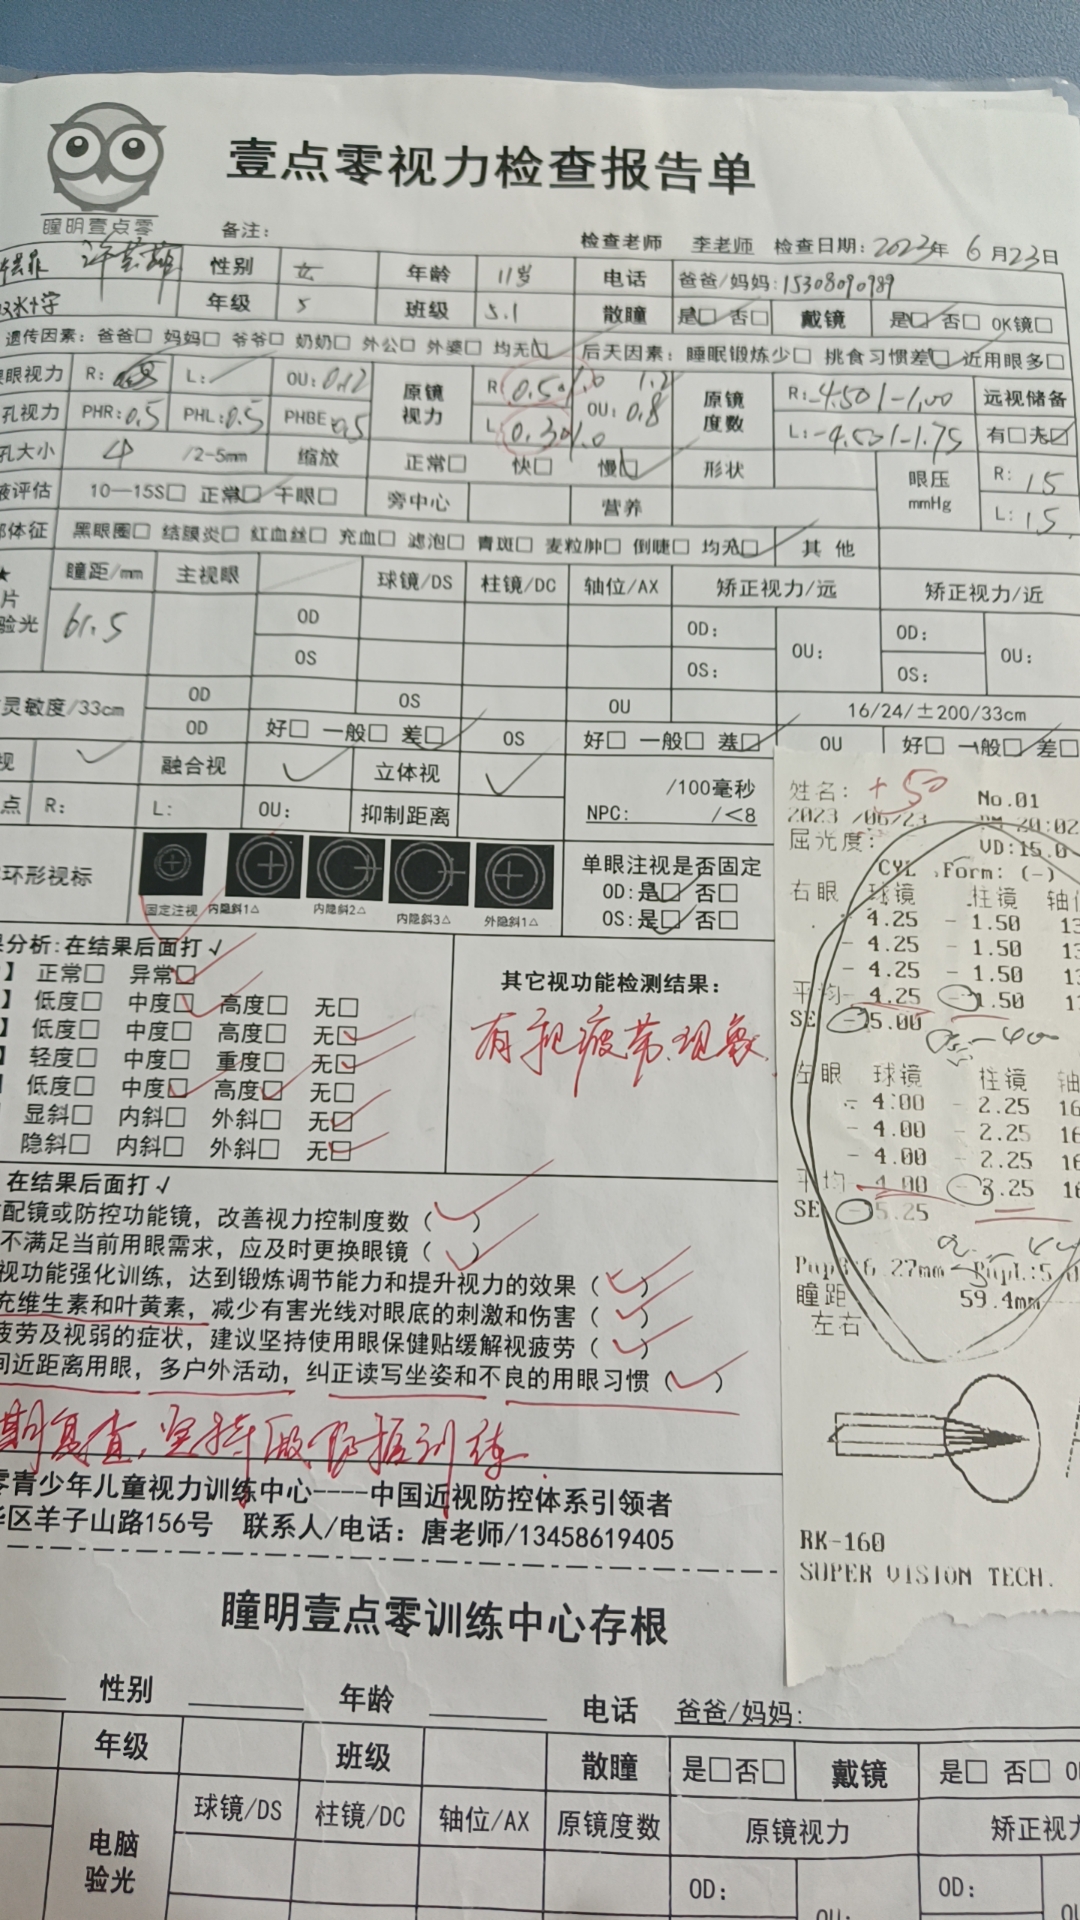 壹点零视力检查报告单
瞳明壹点零
备注：
检查老师 李老师 检查日期：2023年 6月23日
性别 女 年龄 11岁 电话 爸爸/妈妈：15308090989
年级 5 班级 5.1 散瞳 是□ 否□ 戴镜 是□ 否□ OK镜□
遗传因素：爸爸□ 妈妈□ 爷爷□ 奶奶□ 外公□ 外婆□ 均无□ 后天因素：睡眠锻炼少□ 挑食习惯差□ 近用眼多□
眼视力 R: L: OU:0.12 原镜视力 R 0.5 1.0 1.2 原镜度数 R:-4.50/-1.00 远视储备
孔视力 PHR:0.5 PHL:0.5 PHBE:0.5 L 0.3 1.0 OU:0.8 L:-4.50/-1.75 有□ 无□
孔大小 4 /2-5mm 缩放 正常□ 快□ 慢□ 形状 眼压 mmHg R: 15
液评估 10—15S□ 正常□ 干眼□ 旁中心 营养 L: 15
部体征 黑眼圈□ 结膜炎□ 红血丝□ 充血□ 滤泡□ 青斑□ 麦粒肿□ 倒睫□ 均无□ 其他
★ 瞳距/mm 主视眼 球镜/DS 柱镜/DC 轴位/AX 矫正视力/远 矫正视力/近
片
验光 61.5 OD OD: OU: OD: OU:
OS OS: OS:
灵敏度/33cm OD OS OU 16/24/±200/33cm
OD 好□ 一般□ 差□ OS 好□ 一般□ 差□ OU 好□ 一般□ 差□
视 融合视 立体视 /100毫秒
点 R: L: OU: 抑制距离 NPC: /<8
环形视标 固定注视 内隐斜1△ 内隐斜2△ 内隐斜3△ 外隐斜1△
单眼注视是否固定
OD:是□ 否□
OS:是□ 否□
果分析：在结果后面打√
】 正常□ 异常□
】 低度□ 中度□ 高度□ 无□
】 低度□ 中度□ 高度□ 无□
】 轻度□ 中度□ 重度□ 无□
】 低度□ 中度□ 高度□ 无□
显斜□ 内斜□ 外斜□ 无□
隐斜□ 内斜□ 外斜□ 无□
其它视功能检测结果：
有视疲劳现象
在结果后面打√
配镜或防控功能镜，改善视力控制度数（ ）
不满足当前用眼需求，应及时更换眼镜（ ）
视功能强化训练，达到锻炼调节能力和提升视力的效果（ ）
充维生素和叶黄素，减少有害光线对眼底的刺激和伤害（ ）
疲劳及视弱的症状，建议坚持使用眼保健贴缓解视疲劳（ ）
间近距离用眼，多户外活动，纠正读写坐姿和不良的用眼习惯（ ）
期复查，坚持做防控训练.
零青少年儿童视力训练中心----中国近视防控体系引领者
华区羊子山路156号 联系人/电话：唐老师/13458619405
姓名： +50 No.01
2023 /06/23 PM 20:02
屈光度： VD:15.0
CYL Form: (-)
右眼 球镜 柱镜 轴位
- 4.25 - 1.50 13
- 4.25 - 1.50 13
- 4.25 - 1.50 13
平均- 4.25 - 1.50 1
SE - 5.00
左眼 球镜 柱镜 轴
- 4.00 - 2.25 16
- 4.00 - 2.25 16
- 4.00 - 2.25 16
平均- 4.00 - 2.25 16
SE - 5.25
PupR:6.27mm PupL:5.0
瞳距 59.4mm
左右
RK-160
SUPER VISION TECH.
瞳明壹点零训练中心存根
性别 年龄 电话 爸爸/妈妈：
年级 班级 散瞳 是□否□ 戴镜 是□ 否□
电脑验光 球镜/DS 柱镜/DC 轴位/AX 原镜度数 原镜视力 矫正视力
OD: OD:
OU: